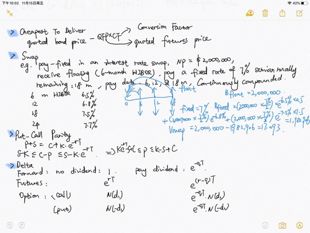 下午10:02 11月15日周五
Cheapest To Deliver Conversion Factor
quoted bond price - quoted futures price
Swap
e.g. pay-fixed in an interest rate swap, NP = $2,000,000,
receive floating (6-month LIBOR), pay a fixed rate of 7% semiannually
remaining : 18 m, pay date : 6, 12, 18 m. Continuously compounded.
6 m LIBOR 6.5%
12 6.8%
18 7.5%
24 7.7%
float
Bfloat = 2,000,000
fixed = 7%
Put-Call Parity
P+S = C+K·e^-rT
S-K ≤ C-P ≤ S-K·e^-rT
Delta
Forward : no dividend : 1. pay dividend : e^-qT
Futures : e^rT e^(r-q)T
Option : (call) N(d₁) e^-qT·N(d₁)
(put) N(-d₁) e^-qT·N(-d₁)